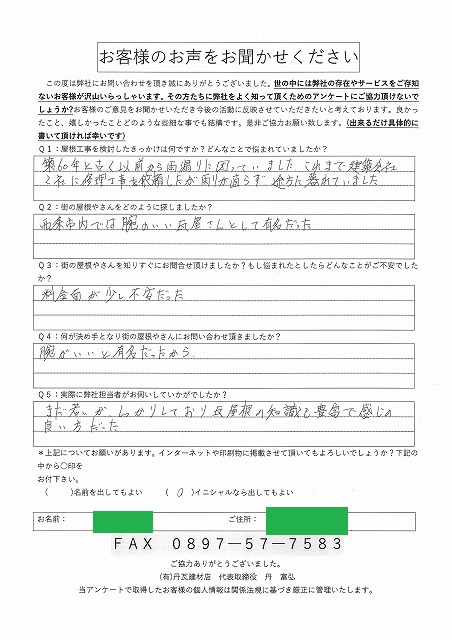 お客様のお声をお聞かせください
この度は弊社にお問い合わせを頂き誠にありがとうございました。世の中には弊社の存在やサービスをご存知
ないお客様が沢山いらっしゃいます。その方たちに弊社をよく知って頂くためのアンケートにご協力頂けないで
しょうか?お客様のご意見をお聞かせいただき今後の活動に反映させていただきたいと考えております。良かっ
たこと、嬉しかったことどのような些細な事でも結構です。是非ご協力お願い致します。(出来るだけ具体的に
書いて頂ければ幸いです)
Q１：屋根工事を検討したきっかけは何ですか？どんなことで悩まれていましたか？
築60年と古く以前から雨漏りに困っていました これまで建築会社
2社に修理工事を依頼したが雨りが直らず 途方に暮れていました
Q２：街の屋根やさんをどのように探しましたか？
西条市内では腕のいい瓦屋さんとして有名だった
Q３：街の屋根やさんを知りすぐにお問合せ頂けましたか？もし悩まれたとしたらどんなことがご不安でした
か？
料金面が少し不安だった
Q４：何が決め手となり街の屋根やさんにお問い合わせ頂きましたか？
腕がいいと有名だったから
Q５：実際に弊社担当者がお伺いしていかがでしたか？
まだ若いが、しっかりしており瓦屋根の知識も豊富で感じの
良い方だった
＊上記についてお願いがあります。インターネットや印刷物に掲載させて頂いてもよろしいでしょうか？下記の
中から〇印を
お付下さい。
(　　)名前を出してもよい　　(　○　)イニシャルなら出してもよい
お名前：　　ご住所：
ＦＡＸ　０８９７－５７－７５８３
ご協力ありがとうございました。
(有)丹瓦建材店　代表取締役　丹　富弘
当アンケートで取得したお客様の個人情報は関係法規に基づき厳正に管理いたします。